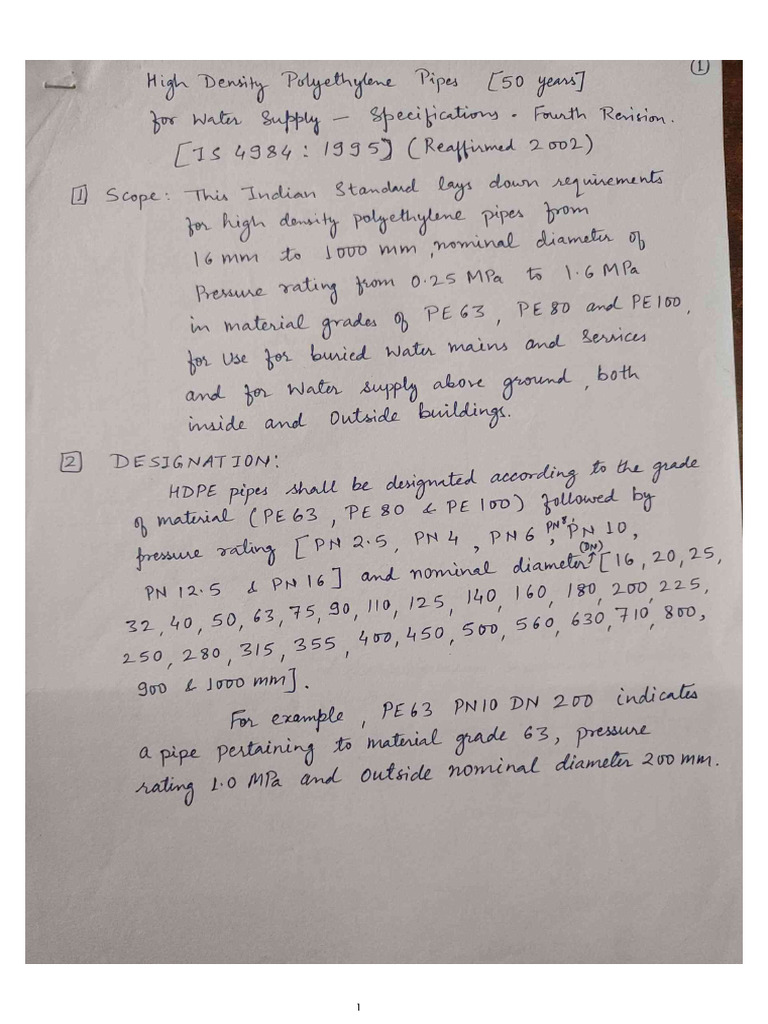 (1)
High Density Polyethylene Pipes [50 years]
for Water Supply – Specifications. Fourth Revision.
[IS 4984 : 1995] (Reaffirmed 2002)
1 Scope: This Indian Standard lays down requirements
for high density polyethylene pipes from
16 mm to 1000 mm, nominal diameter of
Pressure rating from 0.25 MPa to 1.6 MPa
in material grades of PE 63, PE 80 and PE 100,
for Use for buried Water mains and Services
and for Water supply above ground, both
inside and Outside buildings.
2 DESIGNATION:
HDPE pipes shall be designated according to the grade
of material (PE 63, PE 80 & PE 100) followed by
pressure rating [PN 2.5, PN 4, PN 6, PN 8, PN 10,
PN 12.5 & PN 16] and nominal diameter (DN) [16, 20, 25,
32, 40, 50, 63, 75, 90, 110, 125, 140, 160, 180, 200, 225,
250, 280, 315, 355, 400, 450, 500, 560, 630, 710, 800,
900 & 1000 mm].
For example, PE63 PN10 DN 200 indicates
a pipe pertaining to material grade 63, pressure
rating 1.0 MPa and Outside nominal diameter 200 mm.
1